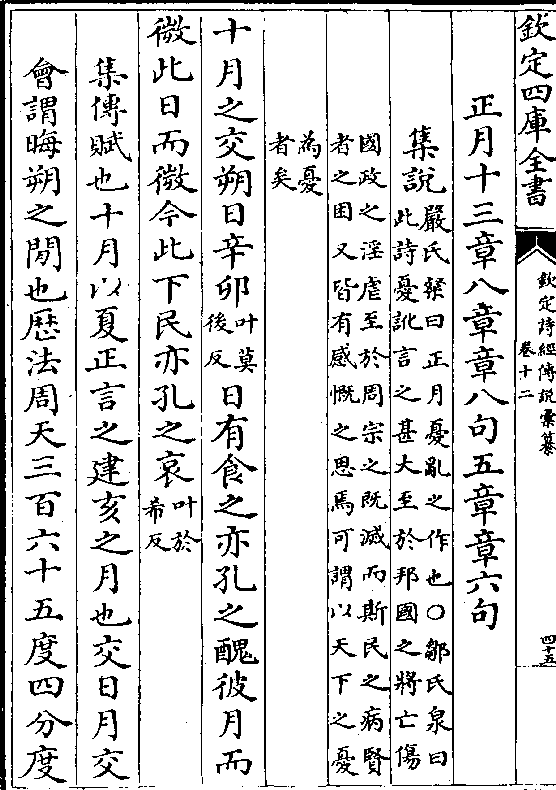 欽定四庫全書
欽定詩經傳說彙纂
卷十二
四十五
正月十三章八章章八句五章章六句
集說
嚴氏粲曰正月憂亂之作也〇鄒氏泉曰
此詩憂訛言之甚大至於邦國之將亡傷
國政之淫虐至於周宗之既滅而斯民之病賢
者之困又皆有感慨之思焉可謂以天下之憂
為憂
者矣
十月之交朔日辛卯
叶莫
後反
日有食之亦孔之醜彼月而
微此日而微今此下民亦孔之哀
叶於
希反
集傳賦也十月以夏正言之建亥之月也交日月交
會謂晦朔之閒也歷法周天三百六十五度四分度